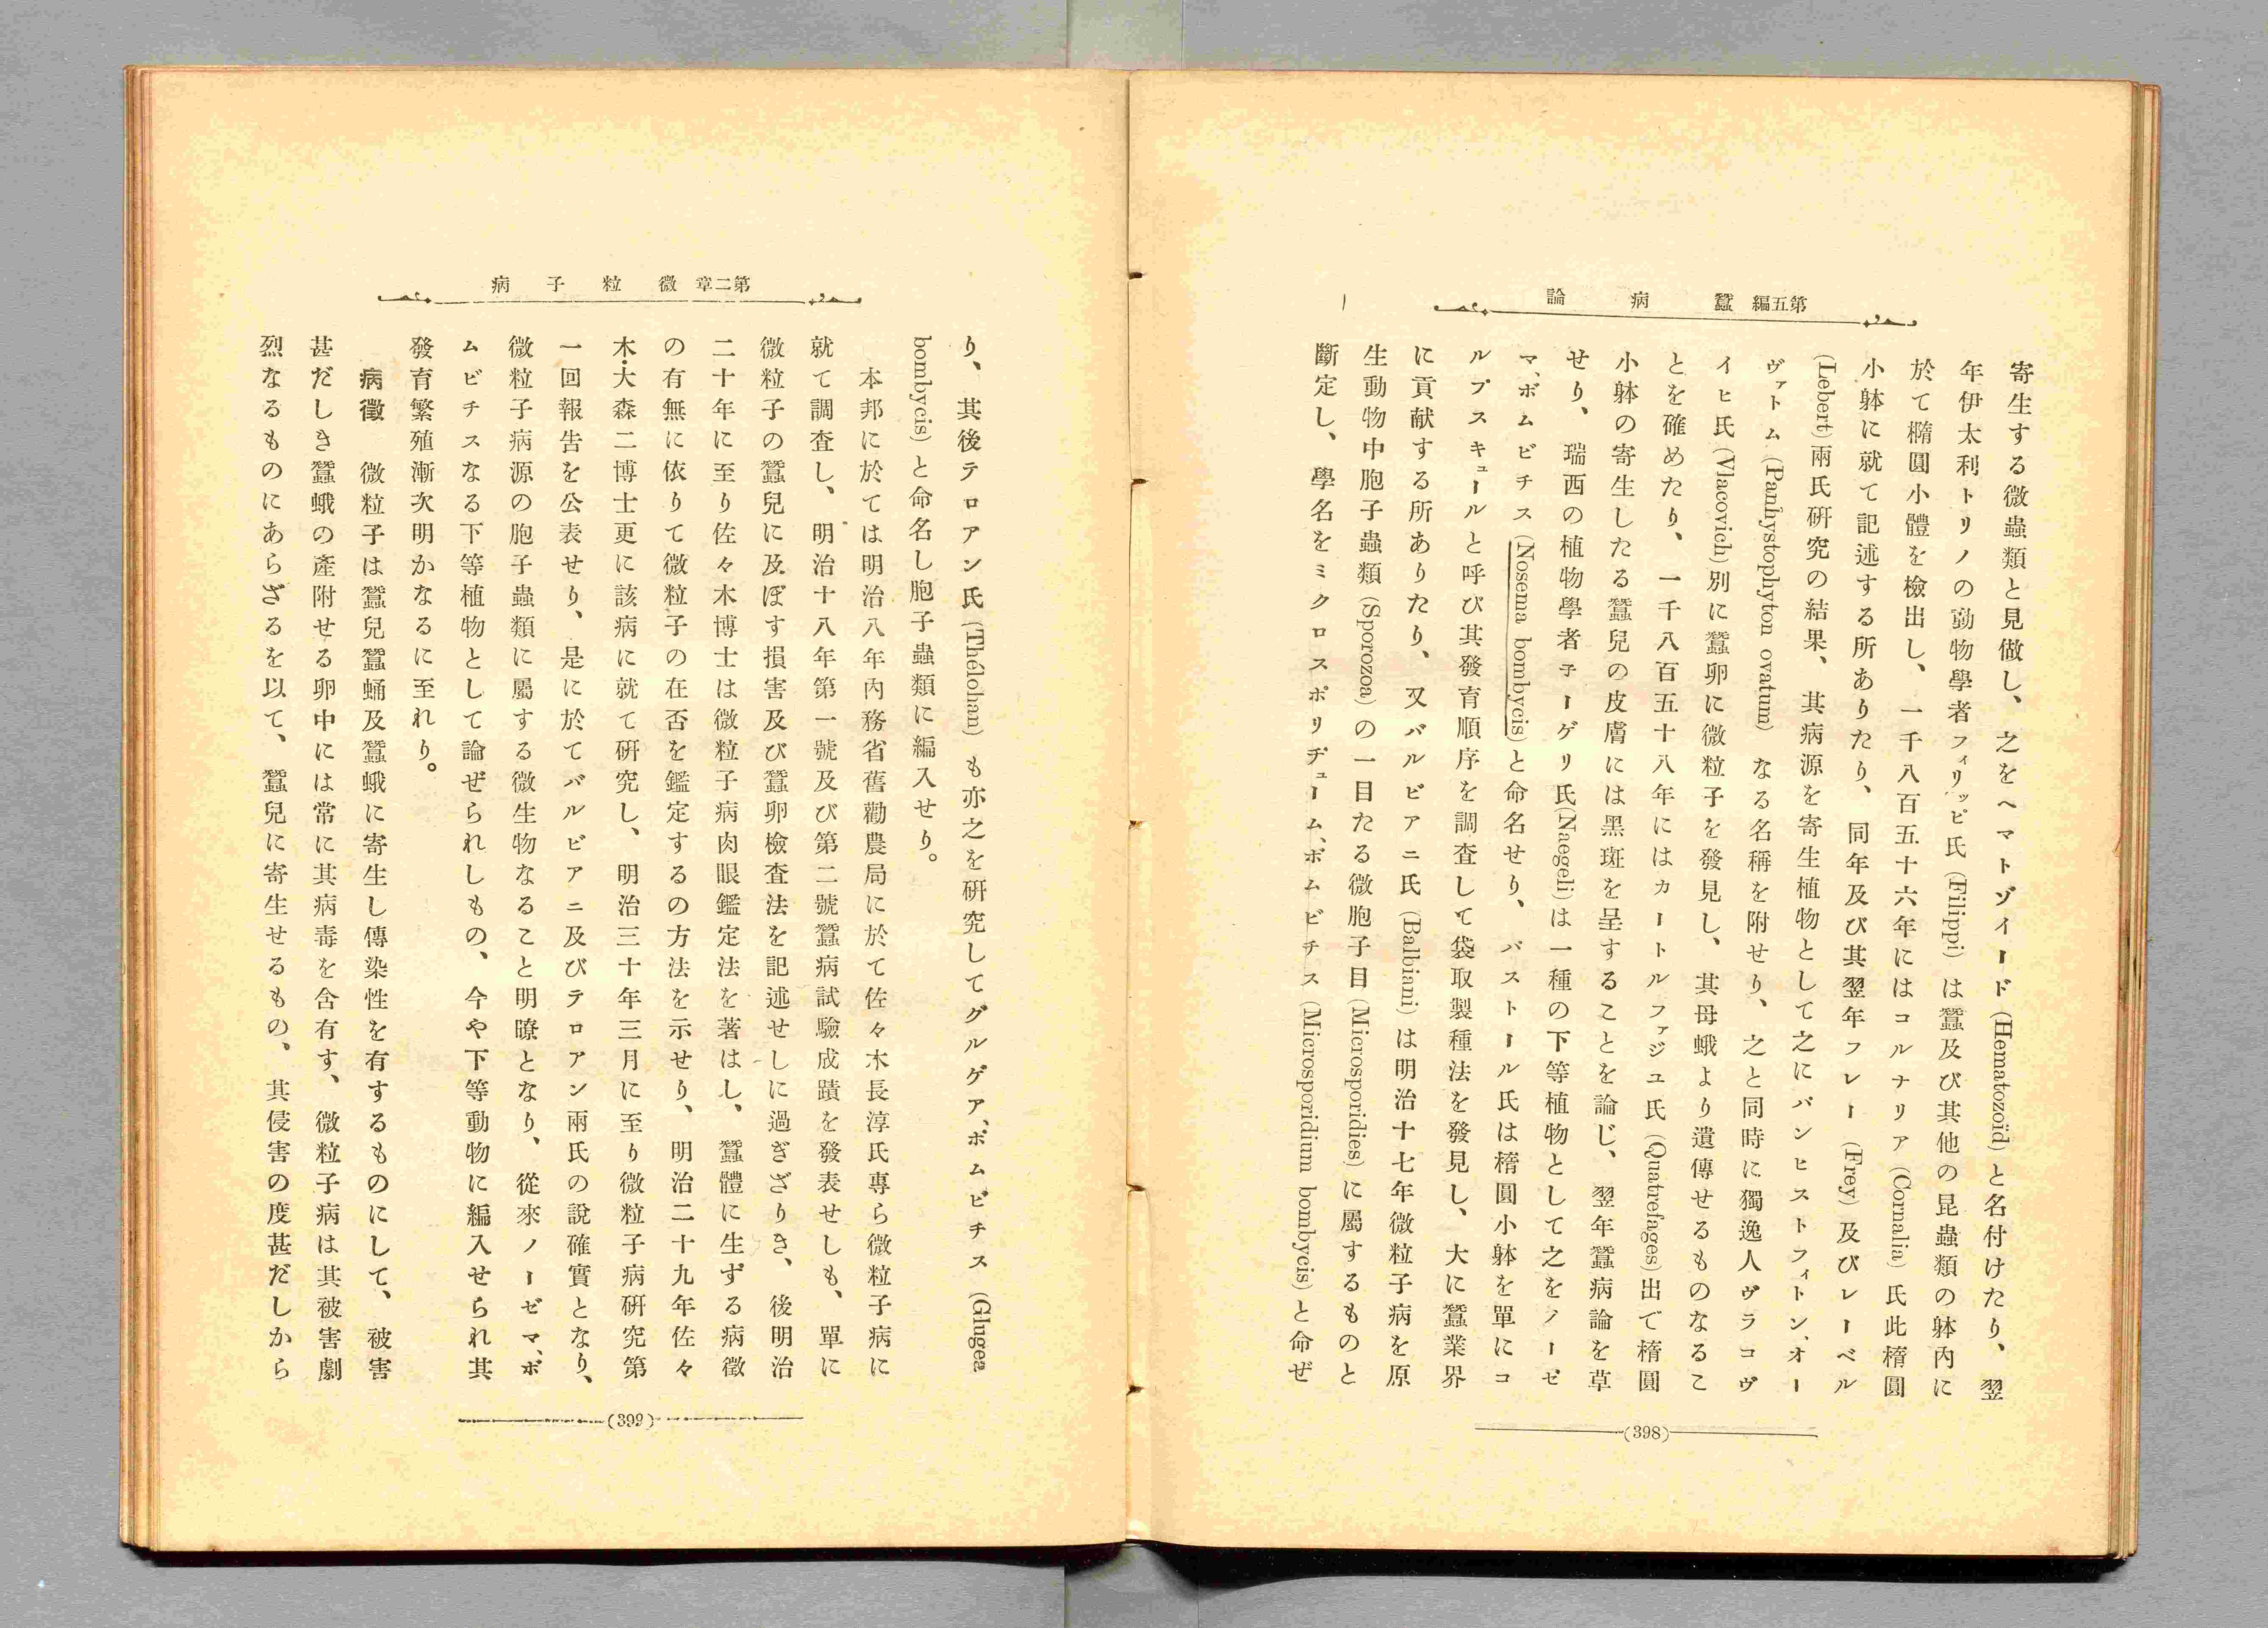 第五編 蠶病論
寄生する微蟲類と見做し、之をヘマトゾイード(Hematozoïd)と名付けたり、翌
年伊太利トリノの動物學者フィリッピ氏(Filippi)は蠶及び其他の昆蟲類の躰內に
於て橢圓小體を檢出し、一千八百五十六年にはコルナリア(Cornalia)氏此楕圓
小躰に就て記述する所ありたり、同年及び其翌年フレー(Frey)及びレーベル
(Lebert)兩氏硏究の結果、其病源を寄生植物として之にパンヒストフィトン、オー
ヴァトム(Panhystophyton ovatum)なる名稱を附せり、之と同時に獨逸人ヴラコヴ
イヒ氏(Vlacovich)別に蠶卵に微粒子を發見し、其母蛾より遺傳せるものなるこ
とを確めたり、一千八百五十八年にはカートルファジュ氏(Quatrefages)出で楕圓
小躰の寄生したる蠶兒の皮膚には黑斑を呈することを論じ、翌年蠶病論を草
せり、瑞西の植物學者子ーゲリ氏(Naegeli)は一種の下等植物として之をノーゼ
マ、ボムビチス(Nosema bombycis)と命名せり、パストール氏は楕圓小躰を單にコ
ルプスキュールと呼び其發育順序を調査して袋取製種法を發見し、大に蠶業界
に貢献する所ありたり、又バルビアニ氏(Balbiani)は明治十七年微粒子病を原
生動物中胞子蟲類(Sporozoa)の一目たる微胞子目(Microsporidies)に屬するものと
斷定し、學名をミクロスポリヂューム、ボムビチス(Microsporidium bombycis)と命ぜ
(398)
第二章 微粒子病
り、其後テロアン氏(Thélohan)も亦之を硏究してグルゲア、ボムビチス(Glugea
bombycis)と命名し胞子蟲類に編入せり。
本邦に於ては明治八年內務省舊勸農局に於て佐々木長淳氏專ら微粒子病に
就て調査し、明治十八年第一號及び第二號蠶病試驗成蹟を發表せしも、單に
微粒子の蠶兒に及ぼす損害及び蠶卵檢査法を記述せしに過ぎざりき、後明治
二十年に至り佐々木博士は微粒子病肉眼鑑定法を著はし、蠶體に生ずる病徵
の有無に依りて微粒子の在否を鑑定するの方法を示せり、明治二十九年佐々
木・大森二博士更に該病に就て硏究し、明治三十年三月に至り微粒子病硏究第
一回報告を公表せり、是に於てバルビアニ及びテロアン兩氏の說確實となり、
微粒子病源の胞子蟲類に屬する微生物なること明瞭となり、從來ノーゼマ、ボ
ムビチスなる下等植物として論ぜられしもの、今や下等動物に編入せられ其
發育繁殖漸次明かなるに至れり。
病徵 微粒子は蠶兒蠶蛹及蠶蛾に寄生し傳染性を有するものにして、被害
甚だしき蠶蛾の產附せる卵中には常に其病毒を含有す、微粒子病は其被害劇
烈なるものにあらざるを以て、蠶兒に寄生せるもの、其侵害の度甚だしから
(399)